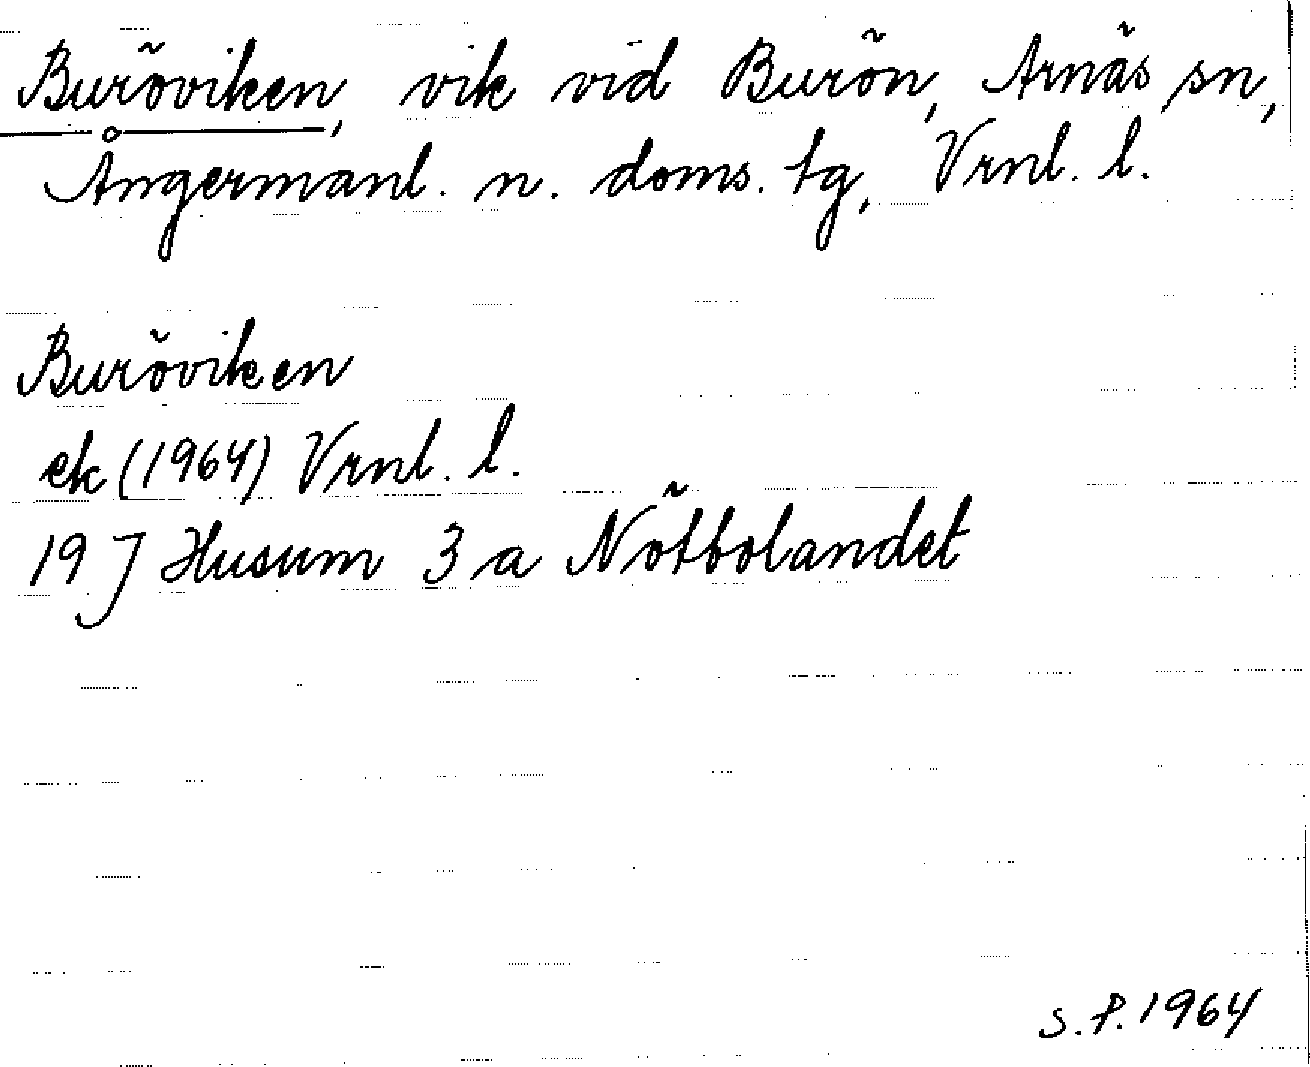 Buröviken, vik vid Burön, Arnäs sn,
Ångermanl. n. doms. tg, Vrnl. l.
Buröviken
ek (1964) Vrnl. l.
19 J Husum 3 a Nötbolandet
S.P. 1964